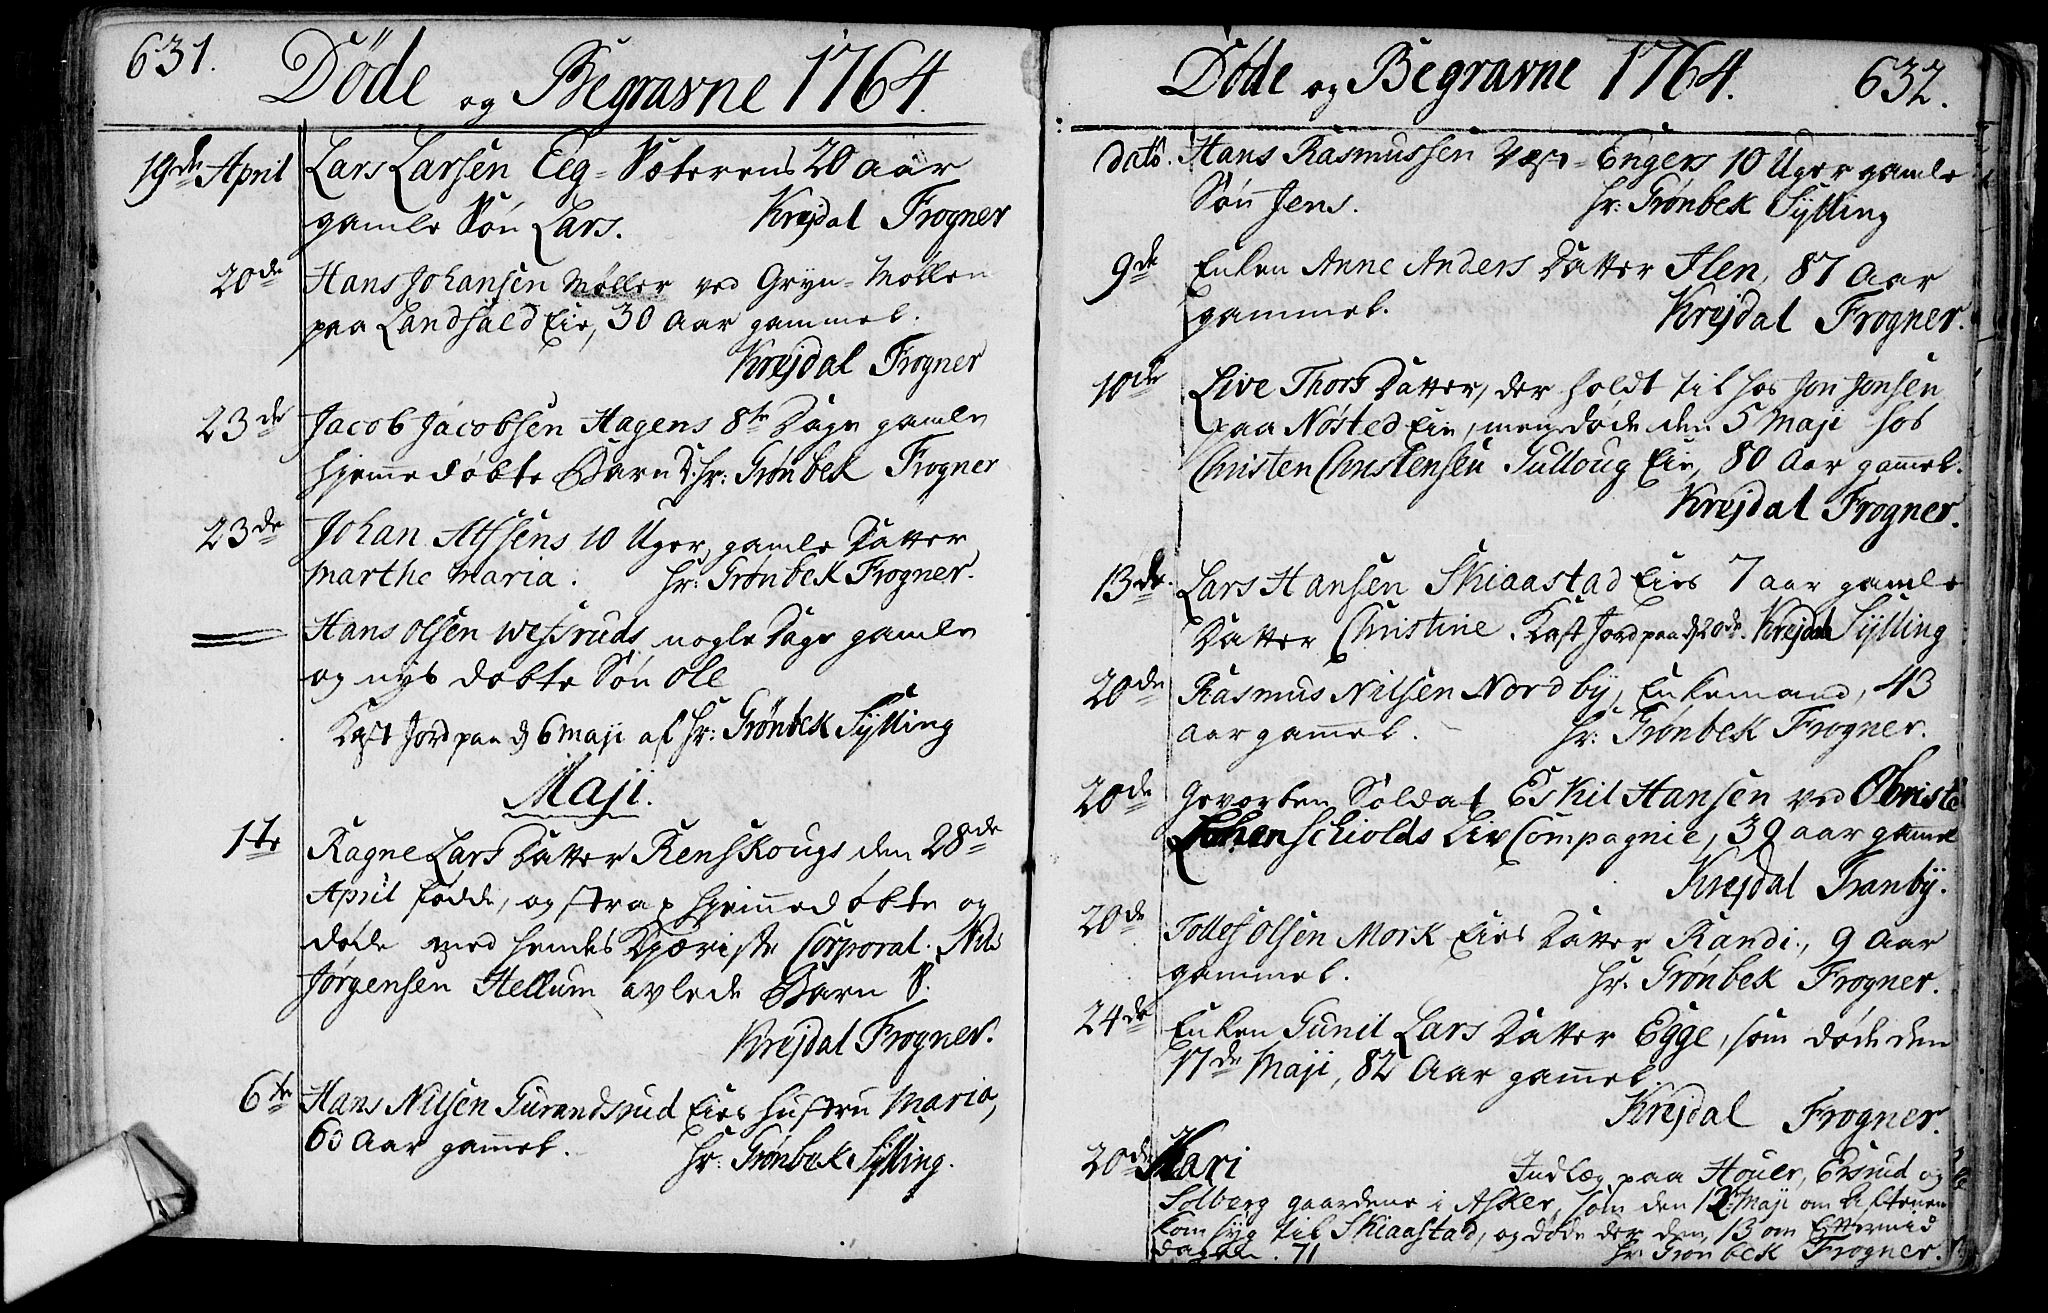 631.
Døde og Begravne 1764.
19de April Lars Larsen Eeg-Sæterens 20 aar
gamle Søn Lars. Krejdal Frogner
20de Hans Johansen Møller ved Gryn-Møllen
paa Landfald Eie, 30 Aar gammel.
Krejdal Frogner
23de Jacob Jacobsen Hagens 8te Dage gamle
hjemmedøbte Barn D. Hr: Grønbek Frogner
23de Johan Alfsens 10 Uger gamle Datter
Marthe Maria. Hr: Grønbek Frogner.
Hans Olsen Wefsruds nogle Dage gamle
og nys døbte Søn Ole
Kast Jord paa d 6 Maji af Hr: Grønbek Sylling
Maji.
1te Ragne Lars Datter Renskougs den 28de
April fødde, og strax hjemmedøbte og
døde med hendes Kjæriste Corporal Nils
Jørgensen Hellum avlede Barn S.
Krejdal Frogner.
6te Hans Nilsen Gurandsrud Eies Hustru Maria,
60 Aar gammel. Hr: Grønbek Sylling.
Døde og Begravne 1764. 632.
dato. Hans Rasmussen Engers 10 Uger gamle
Søn Jens. Hr: Grønbek Sylling
9de Enken Anne Anders Datter Ilen, 87 Aar
gammel. Krejdal Frogner.
10de Live Thors Datter, der holdt til hos Jon Jonsen
paa Nøsted Eie, men døde den 5 Maji hos
Christen Christensen Gulloug Eie, 80 Aar gammel.
Krejdal Frogner.
13de. Lars Hansen Skiaastad Eies 7 aar gamle
Datter Christine. Kast Jord paa d 20de. Krejdal Sylling
20de Rasmus Nilsen Nordby, Enkemand, 43
Aar gammel. Hr: Grønbek Frogner.
20de Gevorben Soldat Eskil Hansen ved Obriste
Liv Compagnie, 39 aar gammel
Krejdal Tranby.
20de Tollef Olsen Mork Eies Datter Randi, 9 Aar
gammel. Hr. Grønbek Frogner.
24de Enken Gunil Lars Datter Egge, som døde den
17de Maji, 82 Aar gammel.
Krejdal Frogner.
20de Kari Indlæg paa Houer, Ersrud og
Solberg gaardene i Asker, som den 12 Maji om Aftenen
kom syg til Skiaastad, og døde der den 13 om Eftermid
dagen. 71 Hr: Grønbek Frogner.